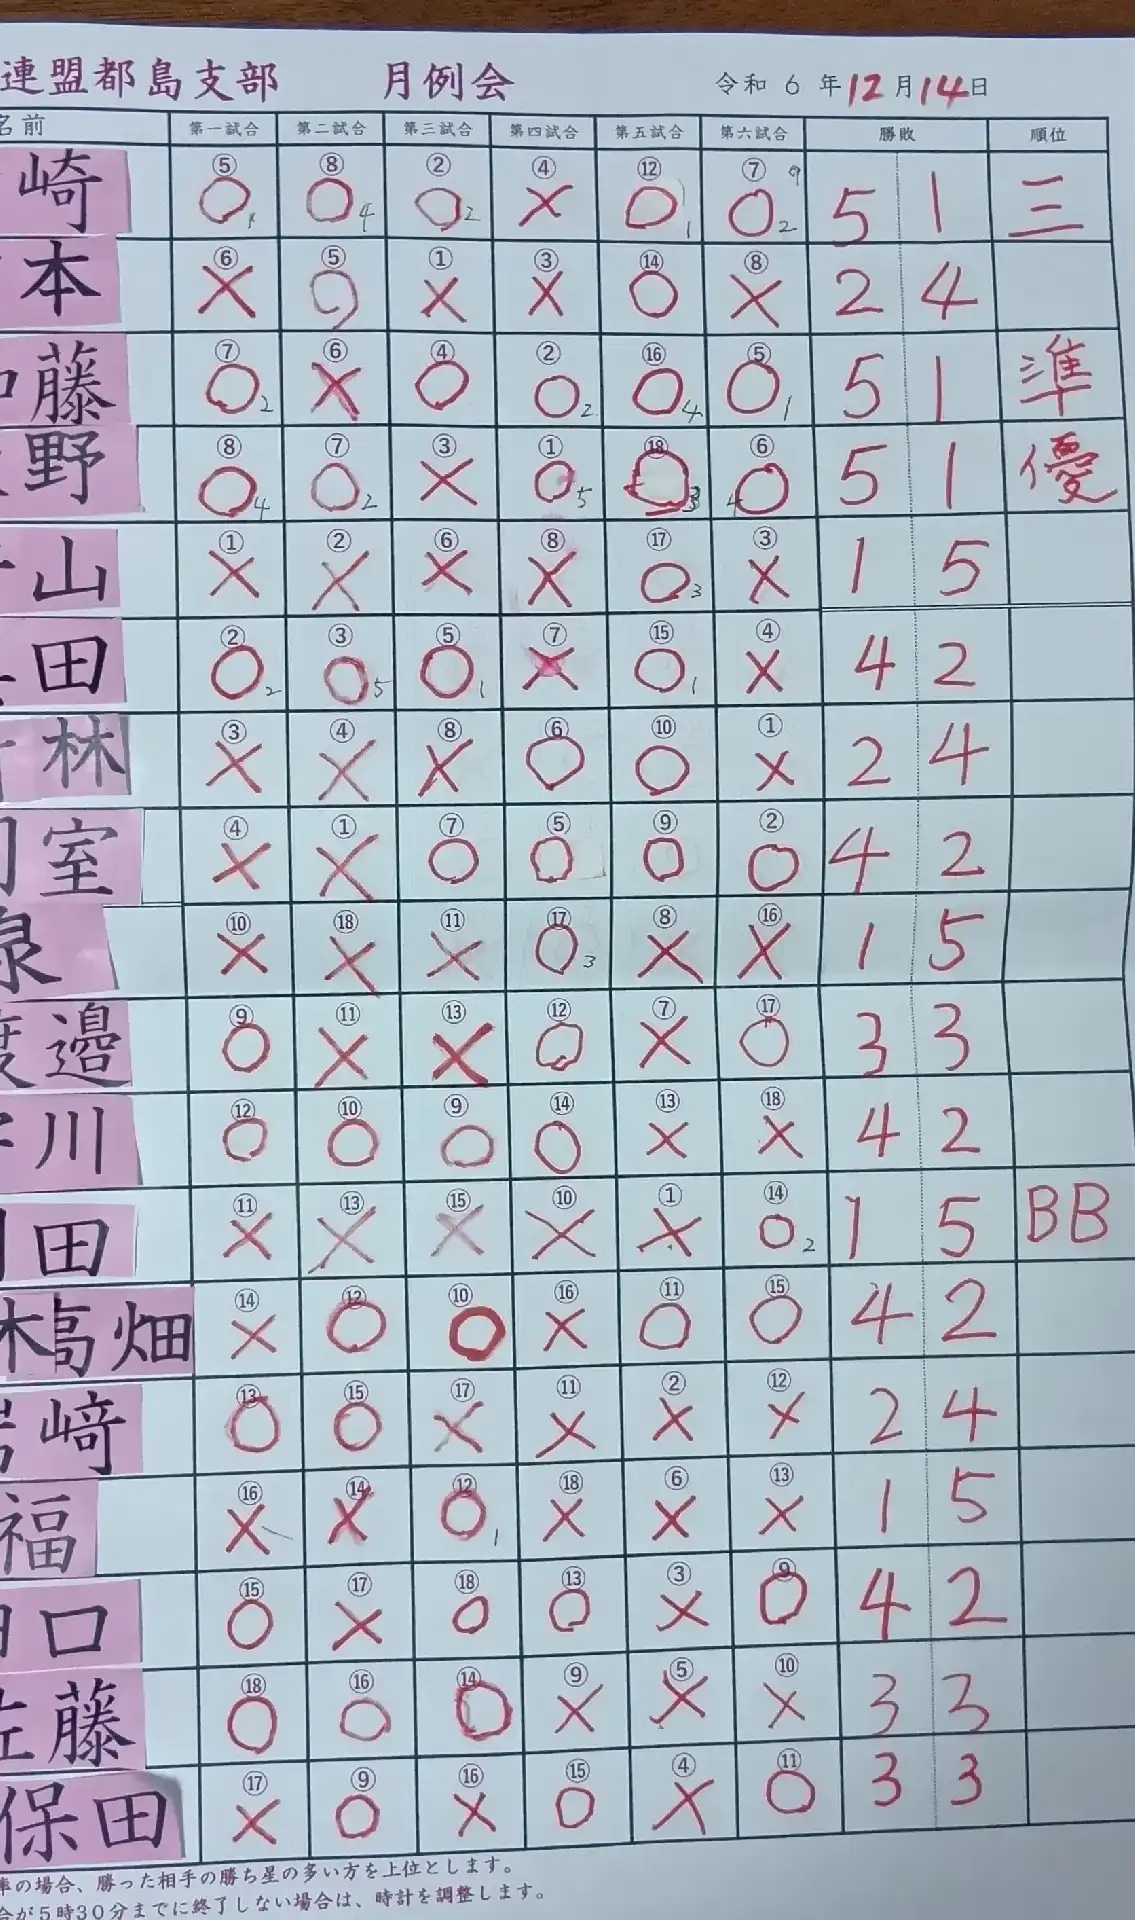 連盟都島支部 月例会 令和 6 年 12 月 14 日
名前 第一試合 第二試合 第三試合 第四試合 第五試合 第六試合 勝敗 順位
崎 ⑤ ○ 1 ⑧ ○ 4 ② ○ 2 ④ × ⑫ ○ 1 ⑦ ○ 2 9 5 1 三
本 ⑥ × ⑤ ○ ① × ③ × ⑭ ○ ⑧ × 2 4
藤 ⑦ ○ 2 ⑥ × ④ ○ ② ○ 2 ⑯ ○ 4 ⑤ ○ 1 5 1 準
野 ⑧ ○ 4 ⑦ ○ 2 ③ × ① ○ 5 ⑱ ○ 3 ⑥ ○ 4 5 1 優
山 ① × ② × ⑥ × ⑧ × ⑰ ○ 3 ③ × 1 5
田 ② ○ 2 ③ ○ 5 ⑤ ○ 1 ⑦ × ⑮ ○ 1 ④ × 4 2
林 ③ × ④ × ⑧ × ⑥ ○ ⑩ ○ ① × 2 4
室 ④ × ① × ⑦ ○ ⑤ ○ ⑨ ○ ② ○ 4 2
泉 ⑩ × ⑱ × ⑪ × ⑰ ○ 3 ⑧ × ⑯ × 1 5
渡邉 ⑨ ○ ⑪ × ⑬ × ⑫ ○ ⑦ × ⑰ ○ 3 3
川 ⑫ ○ ⑩ ○ ⑨ ○ ⑭ ○ ⑬ × ⑱ × 4 2
田 ⑪ × ⑬ × ⑮ × ⑩ × ① × ⑭ ○ 2 1 5 BB
畑 ⑭ × ⑫ ○ ⑩ ○ ⑯ × ⑪ ○ ⑮ ○ 4 2
岩﨑 ⑬ ○ ⑮ ○ ⑰ × ⑪ × ② × ⑫ × 2 4
福 ⑯ × ⑭ × ⑫ ○ 1 ⑱ × ⑥ × ⑬ × 1 5
口 ⑮ ○ ⑰ × ⑱ ○ ⑬ ○ ③ × ⑨ ○ 4 2
佐藤 ⑱ ○ ⑯ ○ ⑭ ○ ⑨ × ⑤ × ⑩ × 3 3
保田 ⑰ × ⑨ ○ ⑯ × ⑮ ○ ④ × ⑪ ○ 3 3
率の場合、勝った相手の勝ち星の多い方を上位とします。
合が5時30分までに終了しない場合は、時計を調整します。